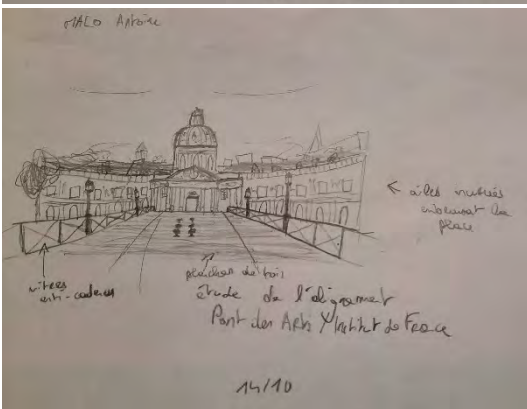 MALO Antoine
← ailes incurvées
la
place
vitres
anti-cadenas
planches de bois
étude de l'alignement
Pont des Arts / Institut de France
14/10